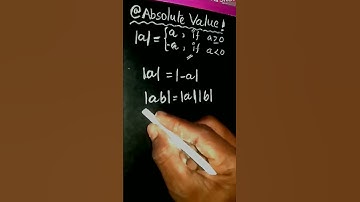 @ Absolute Value!
|a| = { a, if a≥0
-a, if a<0
|a| = |-a|
|ab| = |a||b|